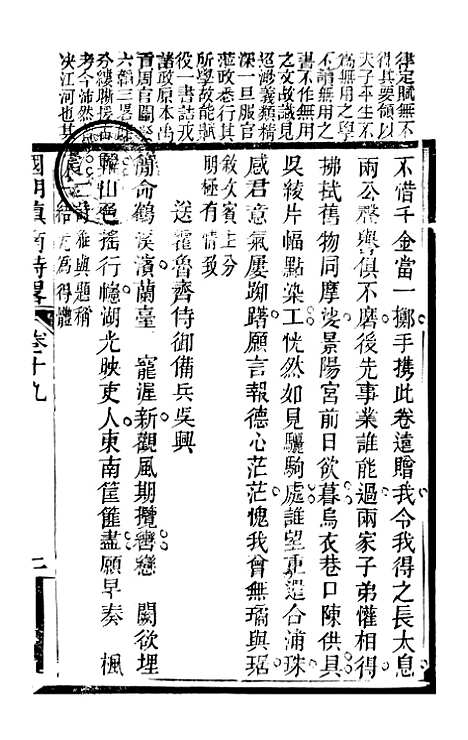 律定賦無不
得其要領以
夫子平生不
爲無用之學
不讀無用之
書不作無用
之文故識見
超邈義類精
深一旦服官
蒞政悉行其
所學故能賦
役一書詰戎
諸政原本禹
貢周官關
六韜三畧
聯援古
考今沛然
決江河也其
不惜千金當一擲手携此卷遠贈我令我得之長太息
兩公聲與俱不磨後先事業誰能過兩家子弟懽相得
拂拭舊物同摩挲景陽宮前日欲暮烏衣巷口陳供具
吳綾片幅點染工恍然如見驪駒處誰望重還合浦珠
感君意氣屢踟躇願言報德心茫茫愧我曾無瓊與琚
敘次賓主分
明極有情致
送霍魯齋侍御備兵吳興
簡命鶴溪濱蘭臺 寵渥新觀風期攬轡戀 闕欲埋
輪山色搖行幰湖光映吏人東南筐篚盡願早奏 楓
宸
雅與題稱
結 爲得體
國朝滇南詩畧 卷十九
二